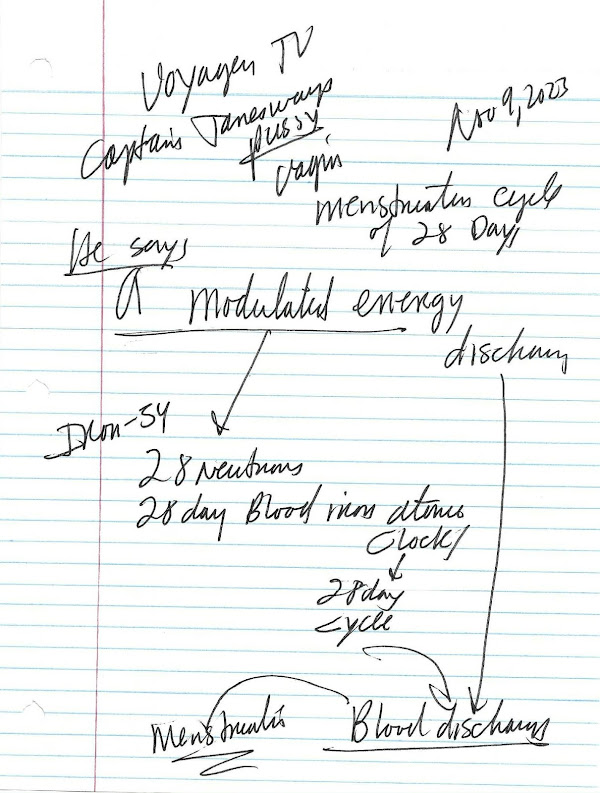 Voyager TV
Captain Janesways
pussy
vagin
Nov 9, 2023
Menstruation cycle
of 28 Days
He says
A modulated energy
discharg
Iron-54
28 Neutrons
28 day Blood iron atomic
Clock
28 day
cycle
Menstruatio
Blood discharg